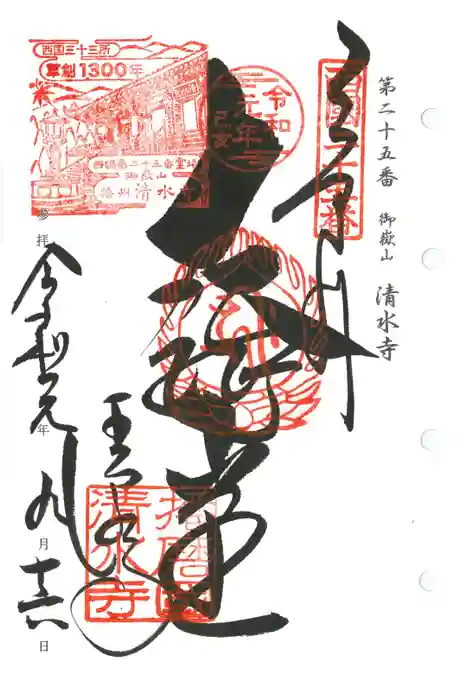 第二十五番 御嶽山 清水寺
西国二十五番
奉拝
大講堂
清水寺
播磨国
清水寺
令和
元年
己亥
西国三十三所
草創1300年
西国第二十五番霊場
御嶽山
播州 清水寺
参拝 令和元年九月十六日